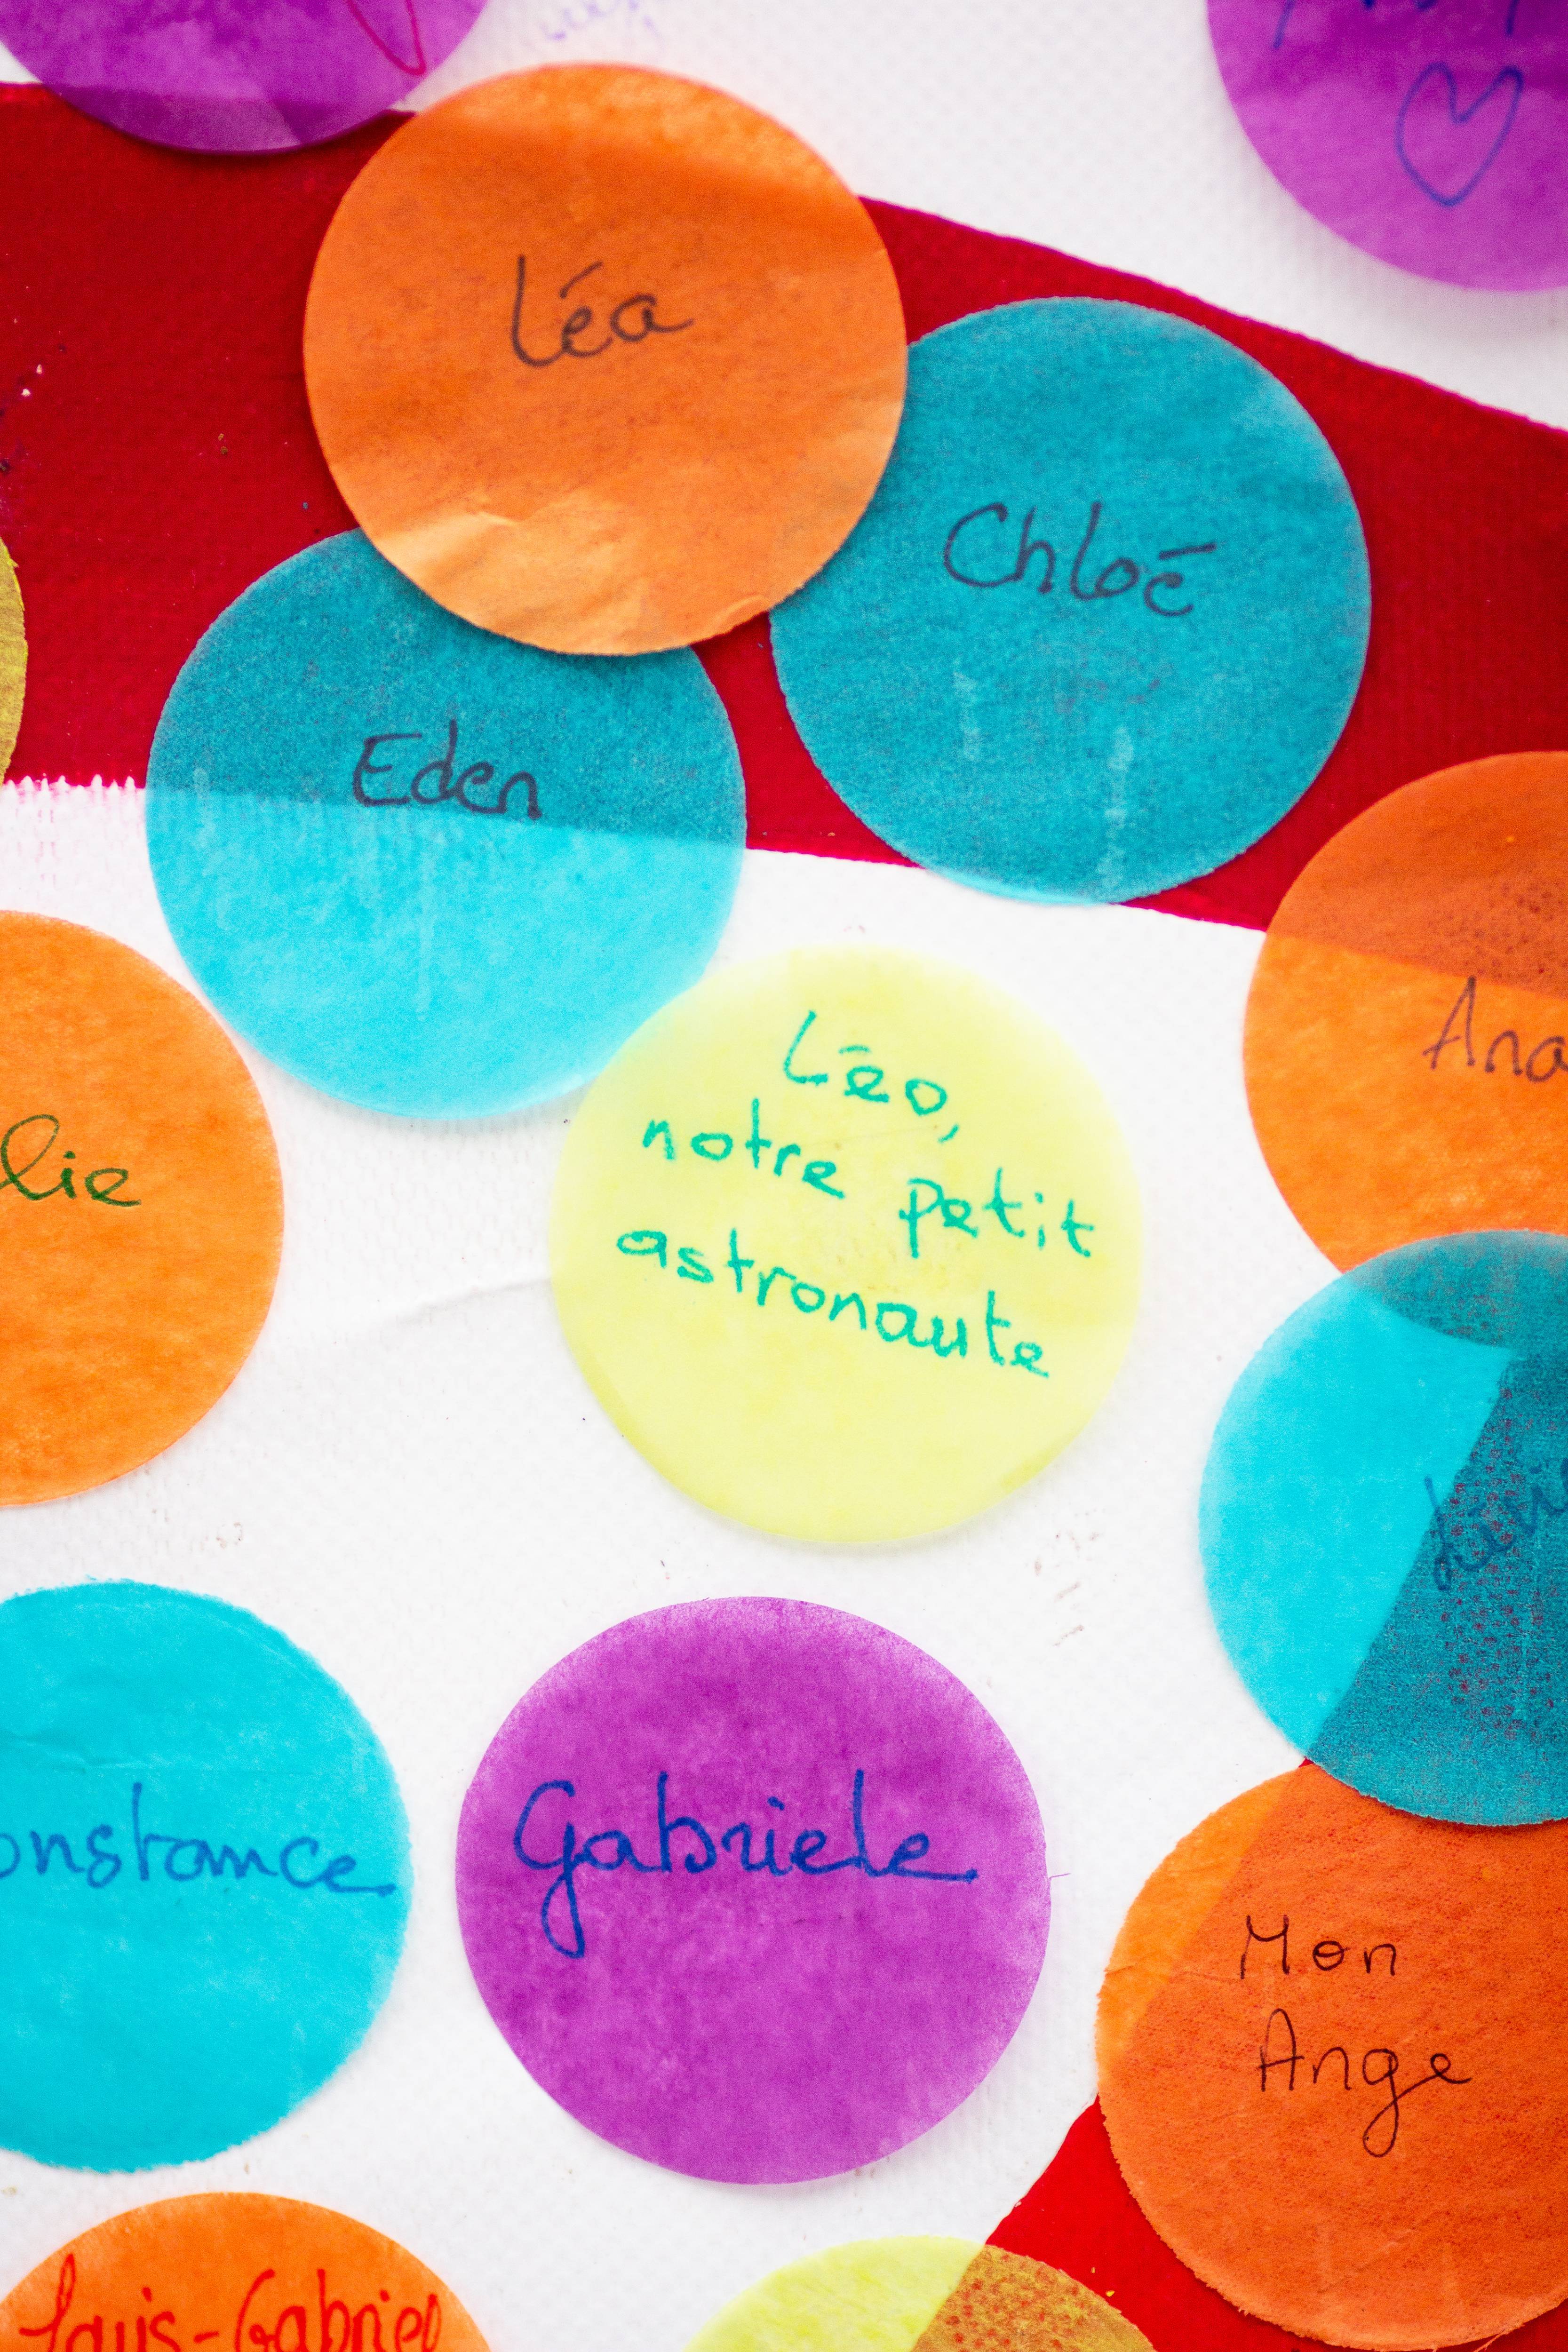 Léa
Chloé
Eden
Léo,
notre petit
astronaute
Ana
lie
onstance
Gabriele
Mon
Ange
Louis-Gabriel